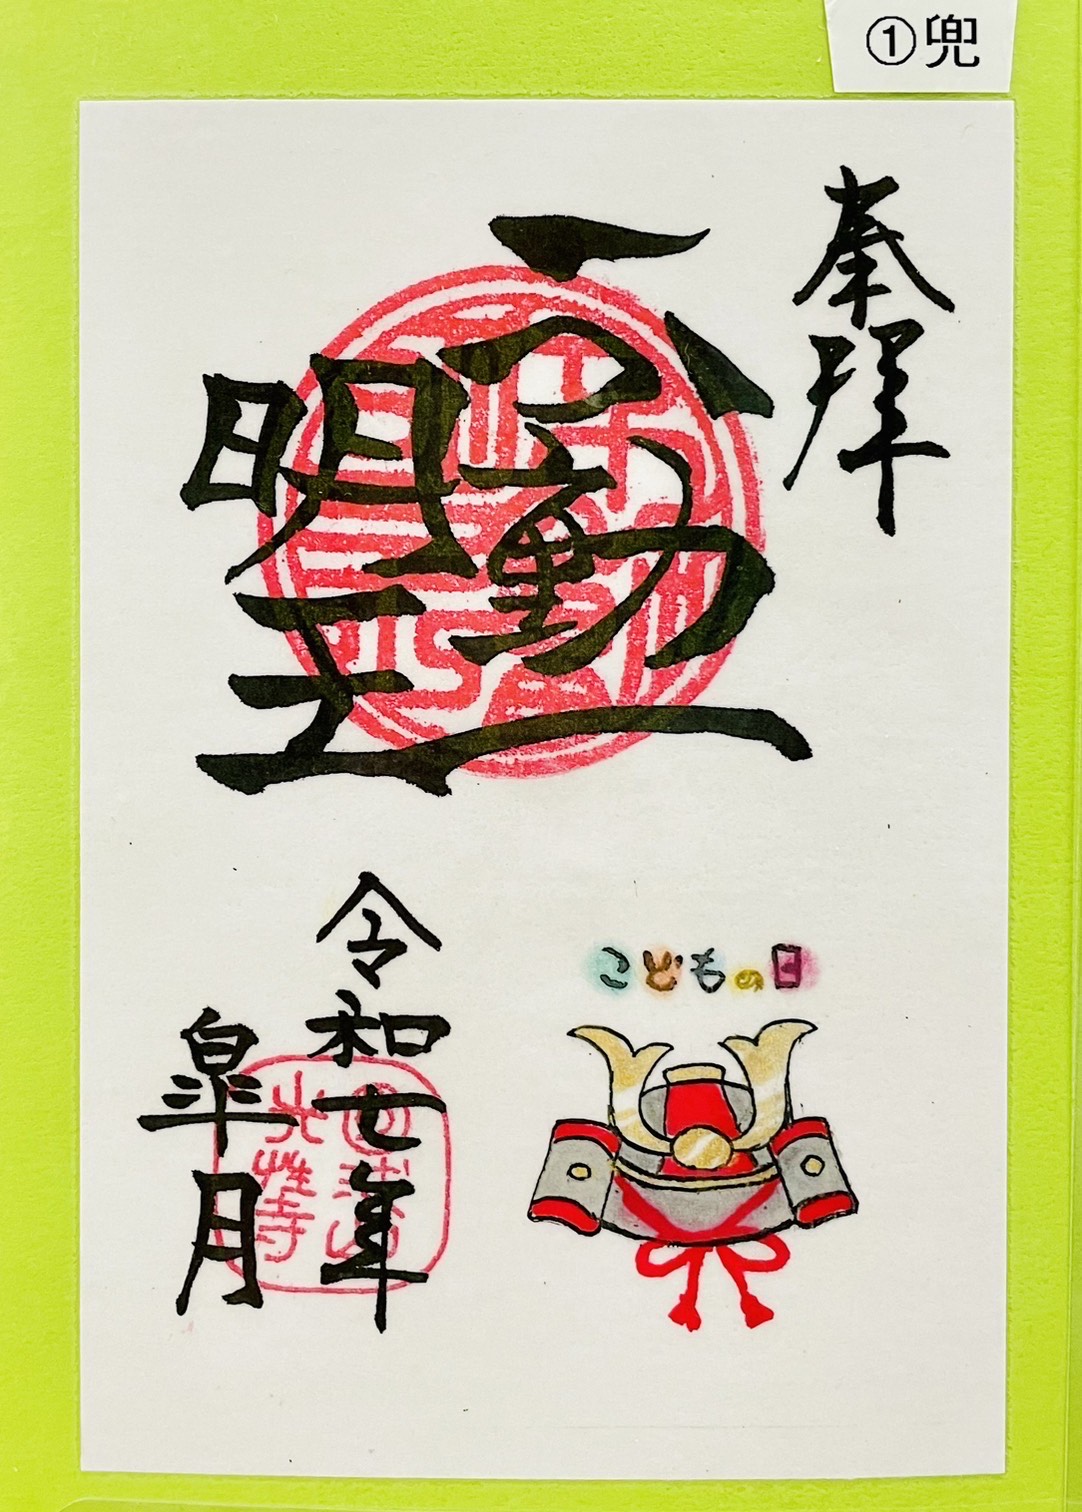 ①兜
奉拝
不動
明王
こどもの日
令和七年
皐月
光性寺